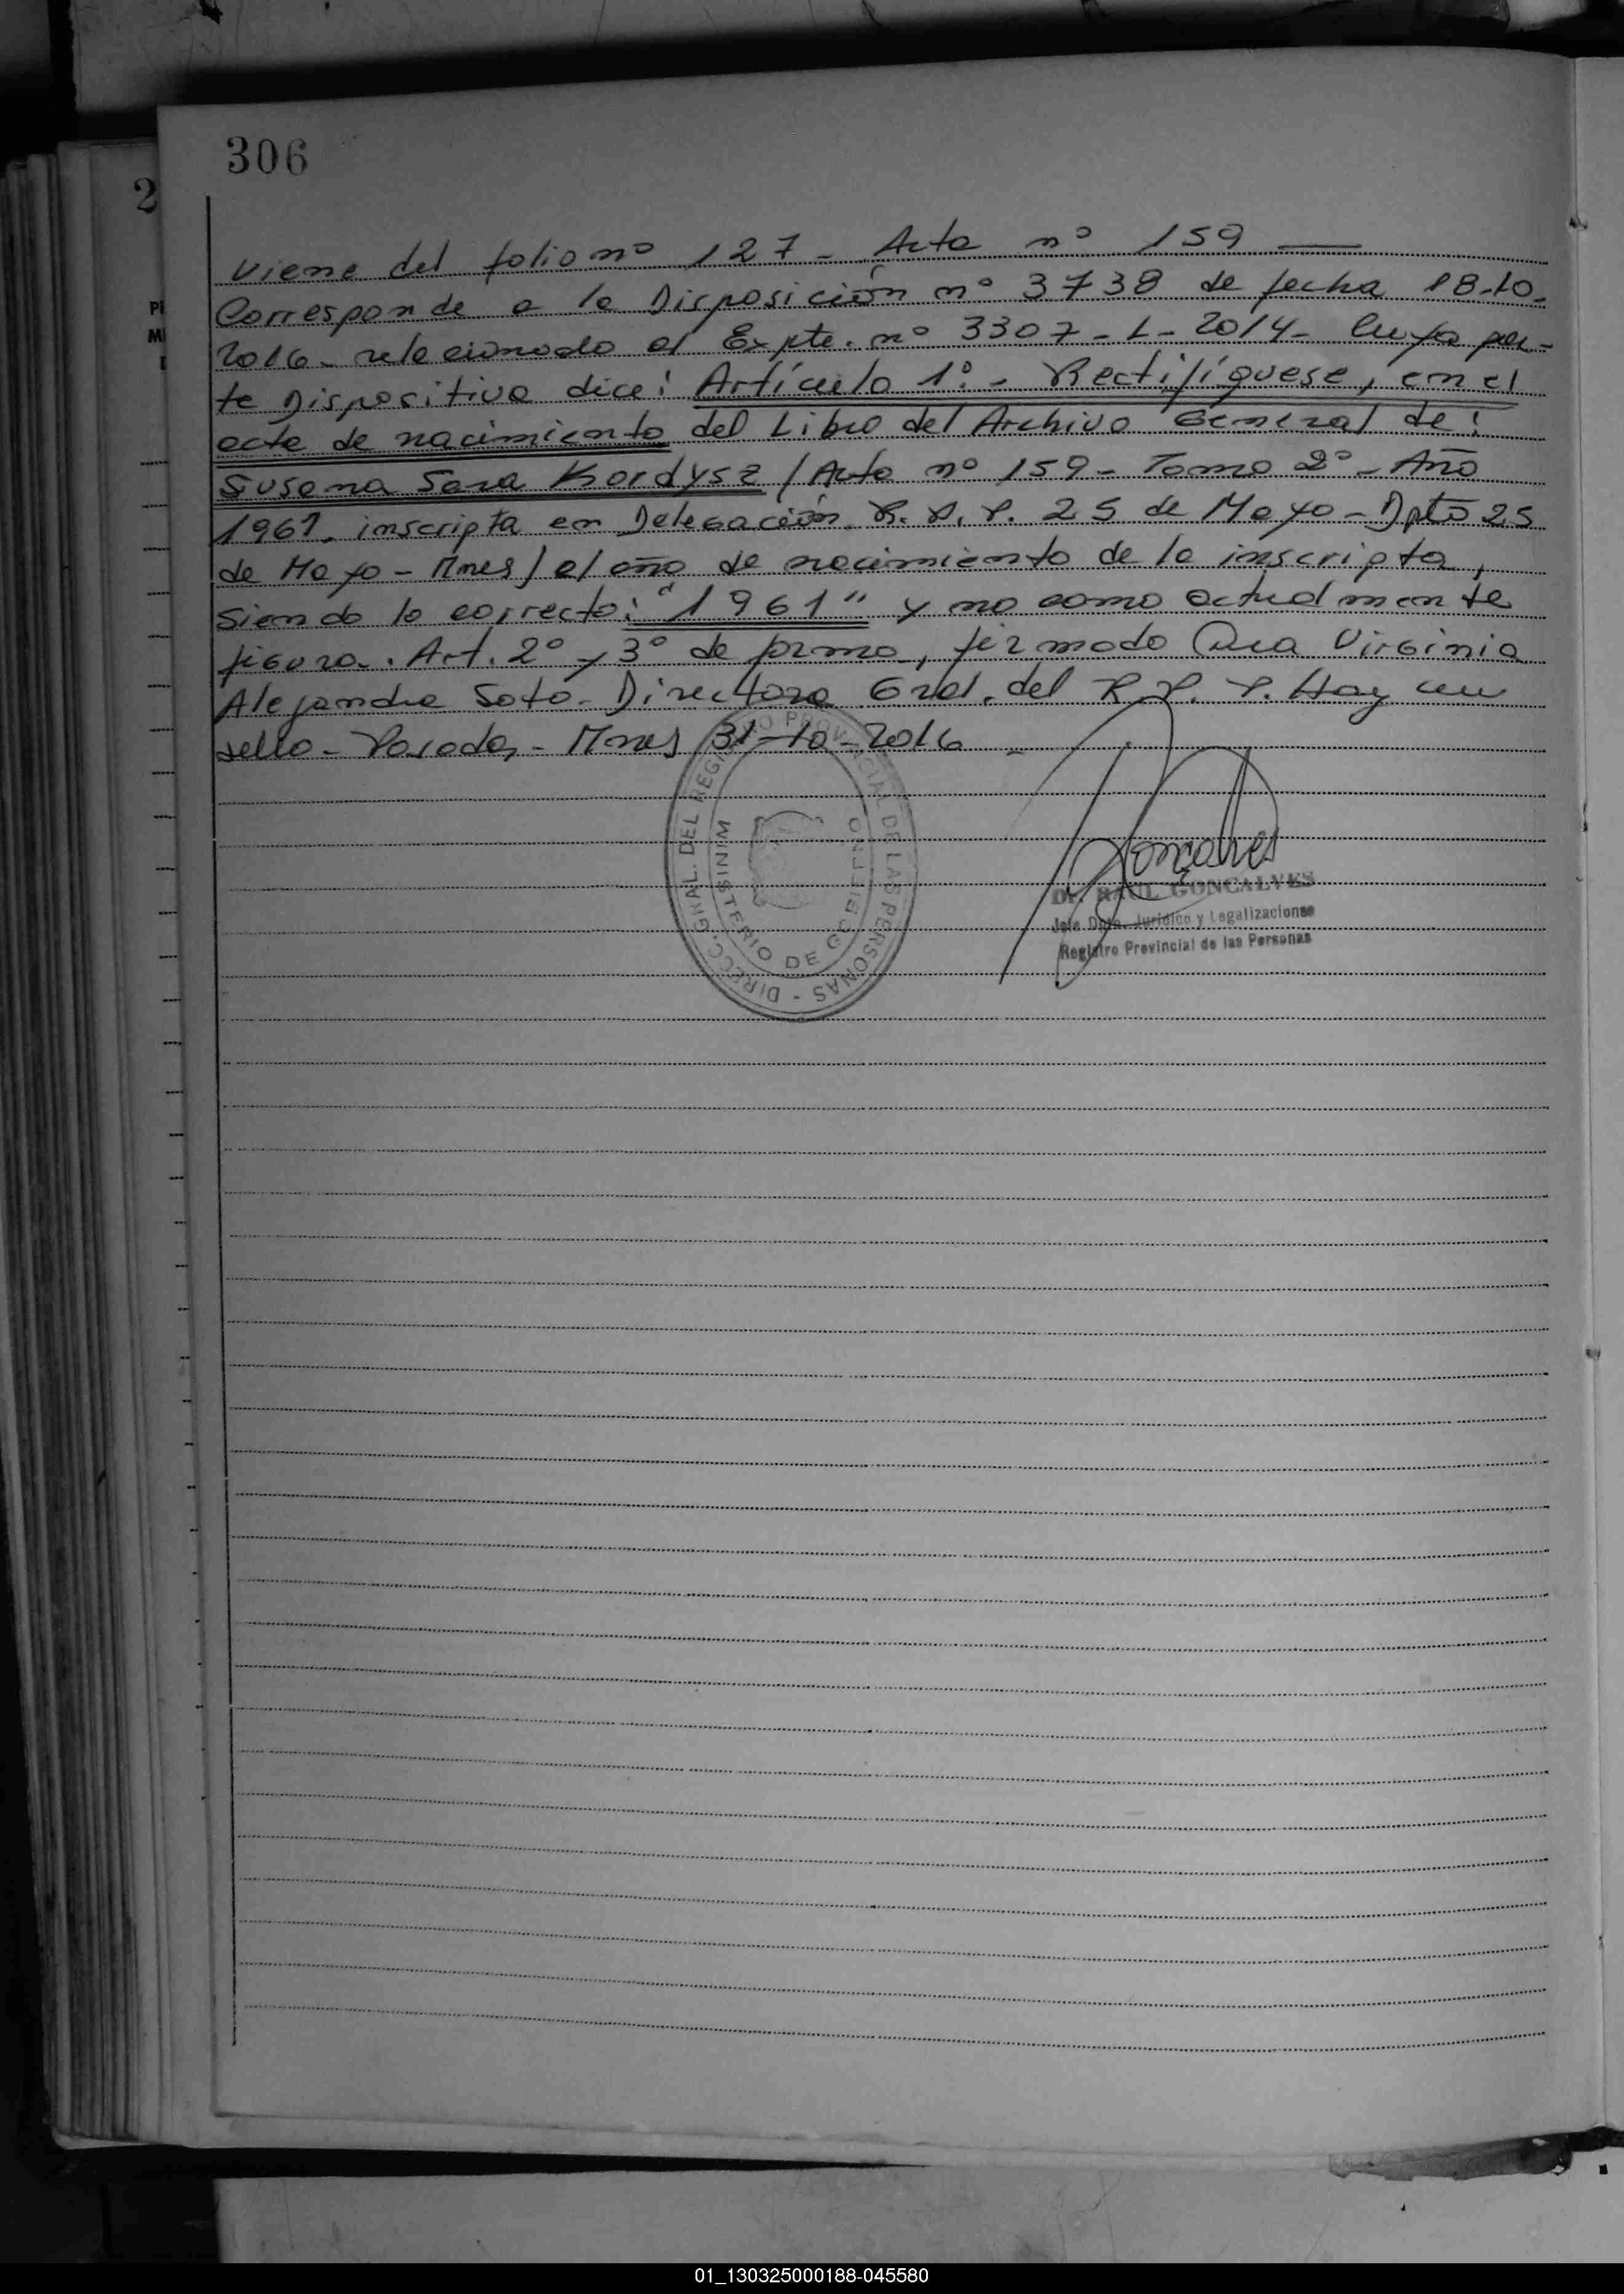 306
2
Viene del folio nº 127 - Acta nº 159
Corresponde a la Disposición nº 3738 de fecha 18-10-
2016- relacionado al Expte. nº 3307-L-2014- Cuya par-
te Dispositiva dice: Artículo 1º.- Rectifíquese, en el
acta de nacimiento del Libro del Archivo General de:
Susana Sara Kordysz (Acta nº 159- Tomo 2º- Año
1961. inscripta en Delegación R.P.P. 25 de Mayo - Dpto 25
de Mayo - Mnes) el año de nacimiento de la inscripta,
siendo lo correcto: "1961" y no como actualmente
figura.. Art. 2º y 3º de forma, firmado Virginia
Alejandra Soto- Directora Gral. del R.P.P. Hay un
sello- Posadas- Mnes 31-10-2016
DIRECC. GRAL. DEL REGISTRO PROVINCIAL DE LAS PERSONAS -
MINISTERIO DE GOBIERNO
Gonçalves
Dr. RAUL GONCALVES
Jefe Dpto. Jurídico y Legalizaciones
Registro Provincial de las Personas
01_130325000188-045580